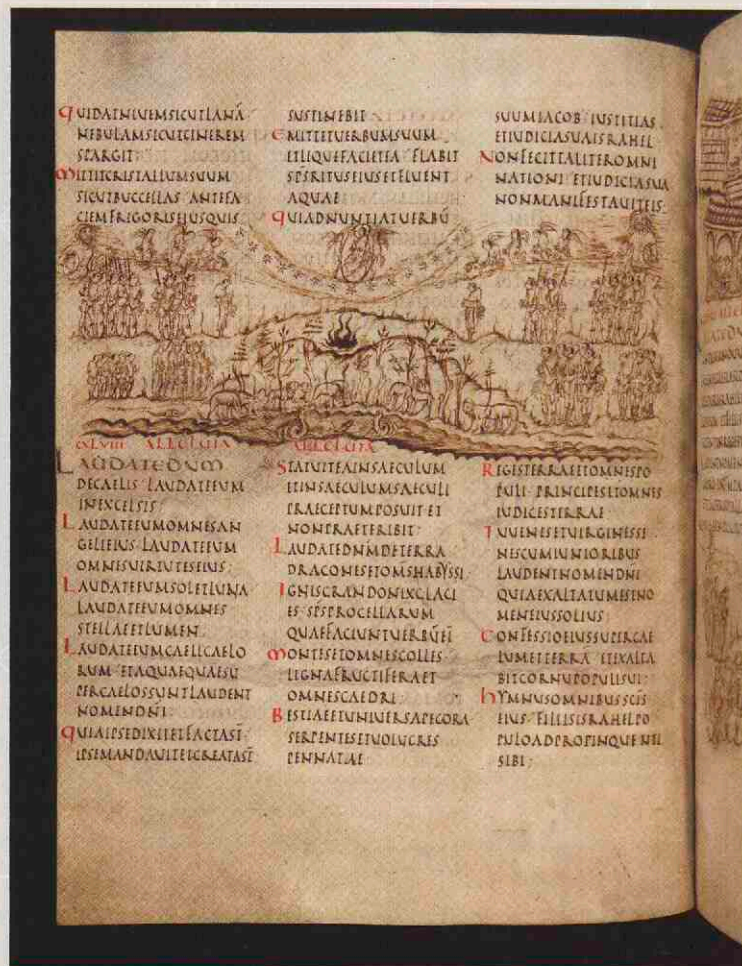 QUIDATNIUEMSICUTLANĀ
NEBULAMSICUTCINEREM
SPARGIT·
MITTITCRISTALLUMSUUM
SICUTBUCCELLAS ANTEFA
CIEMFRIGORISEIUSQUIS
SUSTINEBIT
EMITTETUERBUMSUUM
ETLIQUEFACIETEA FLABIT
SP̄S̄RITUSEIUSETFLUENT
AQUAE
QUIADNUNTIATUERBŪ
SUUMIACOB IUSTITIAS
ETIUDICIASUAISRAHEL
NONFECITTALITEROMNI
NATIONI ETIUDICIASUA
NONMANIFESTAUITEIS·
CXLVIII ALLELUIA
LAUDATEDNM
DECAELIS LAUDATEEUM
INEXCELSIS·
LAUDATEEUMOMNESAN
GELIEIUS LAUDATEEUM
OMNESUIRTUTESEIUS·
LAUDATEEUMSOLETLUNA
LAUDATEEUMOMNES
STELLAEETLUMEN·
LAUDATEEUMCAELICAELO
RUM ETAQUAEQUAESU
PERCAELOSSUNTLAUDENT
NOMENDN̄I·
QUIAIPSEDIXITETFACTASŦ
IPSEMANDAUITETCREATASŦ
ALLELUIA
STATUITEAINSAECULUM
ETINSAECULUMSAECULI
PRAECEPTUMPOSUIT ET
NONPRAETERIBIT·
LAUDATEDN̄MDETERRA
DRACONESETOMS̄HABYSSI
IGNISGRANDONIXGLACI
ES SP̄SPROCELLARUM
QUAEFACIUNTUERBŪEI
MONTESETOMNESCOLLES
LIGNAFRUCTIFERAET
OMNESCAEDRI·
BESTIAEETUNIUERSAPECORA
SERPENTESETUOLUCRES
PENNATAE·
REGESTERRAEETOMNESPO
PULI PRINCIPESETOMNES
IUDICESTERRAE·
IUUENESETUIRGINESSE
NESCUMIUNIORIBUS
LAUDENTNOMENDN̄I
QUIAEXALTATUMESTNO
MENEIUSSOLIUS·
CONFESSIOEIUSSUPERCAE
LUMETTERRĀ ETEXALTA
BITCORNUPOPULISUI·
HYMNUSOMNIBUSSC̄IS
EIUS FILIISISRAHELPO
PULOADPROPINQUENTI
SIBI·